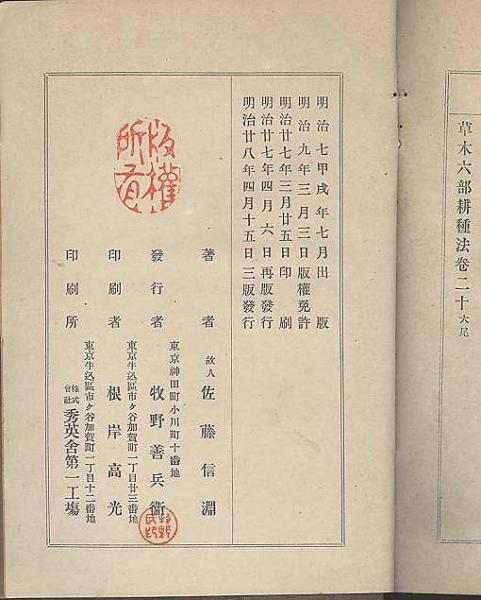 草木六部耕種法卷二十大尾
明治七甲戌年七月出版
明治九年三月三日版權免許
明治廿七年三月廿五日印刷
明治廿七年四月六日再版發行
明治廿八年四月十五日三版發行
著者 故人 佐藤信淵
東京神田町小川町十番地
發行者 牧野善兵衞
東京牛込區市ケ谷加賀町一丁目廿三番地
印刷者 根岸高光
東京牛込區市ケ谷加賀町一丁目十二番地
印刷所 株式會社 秀英舍第一工場
版權所有